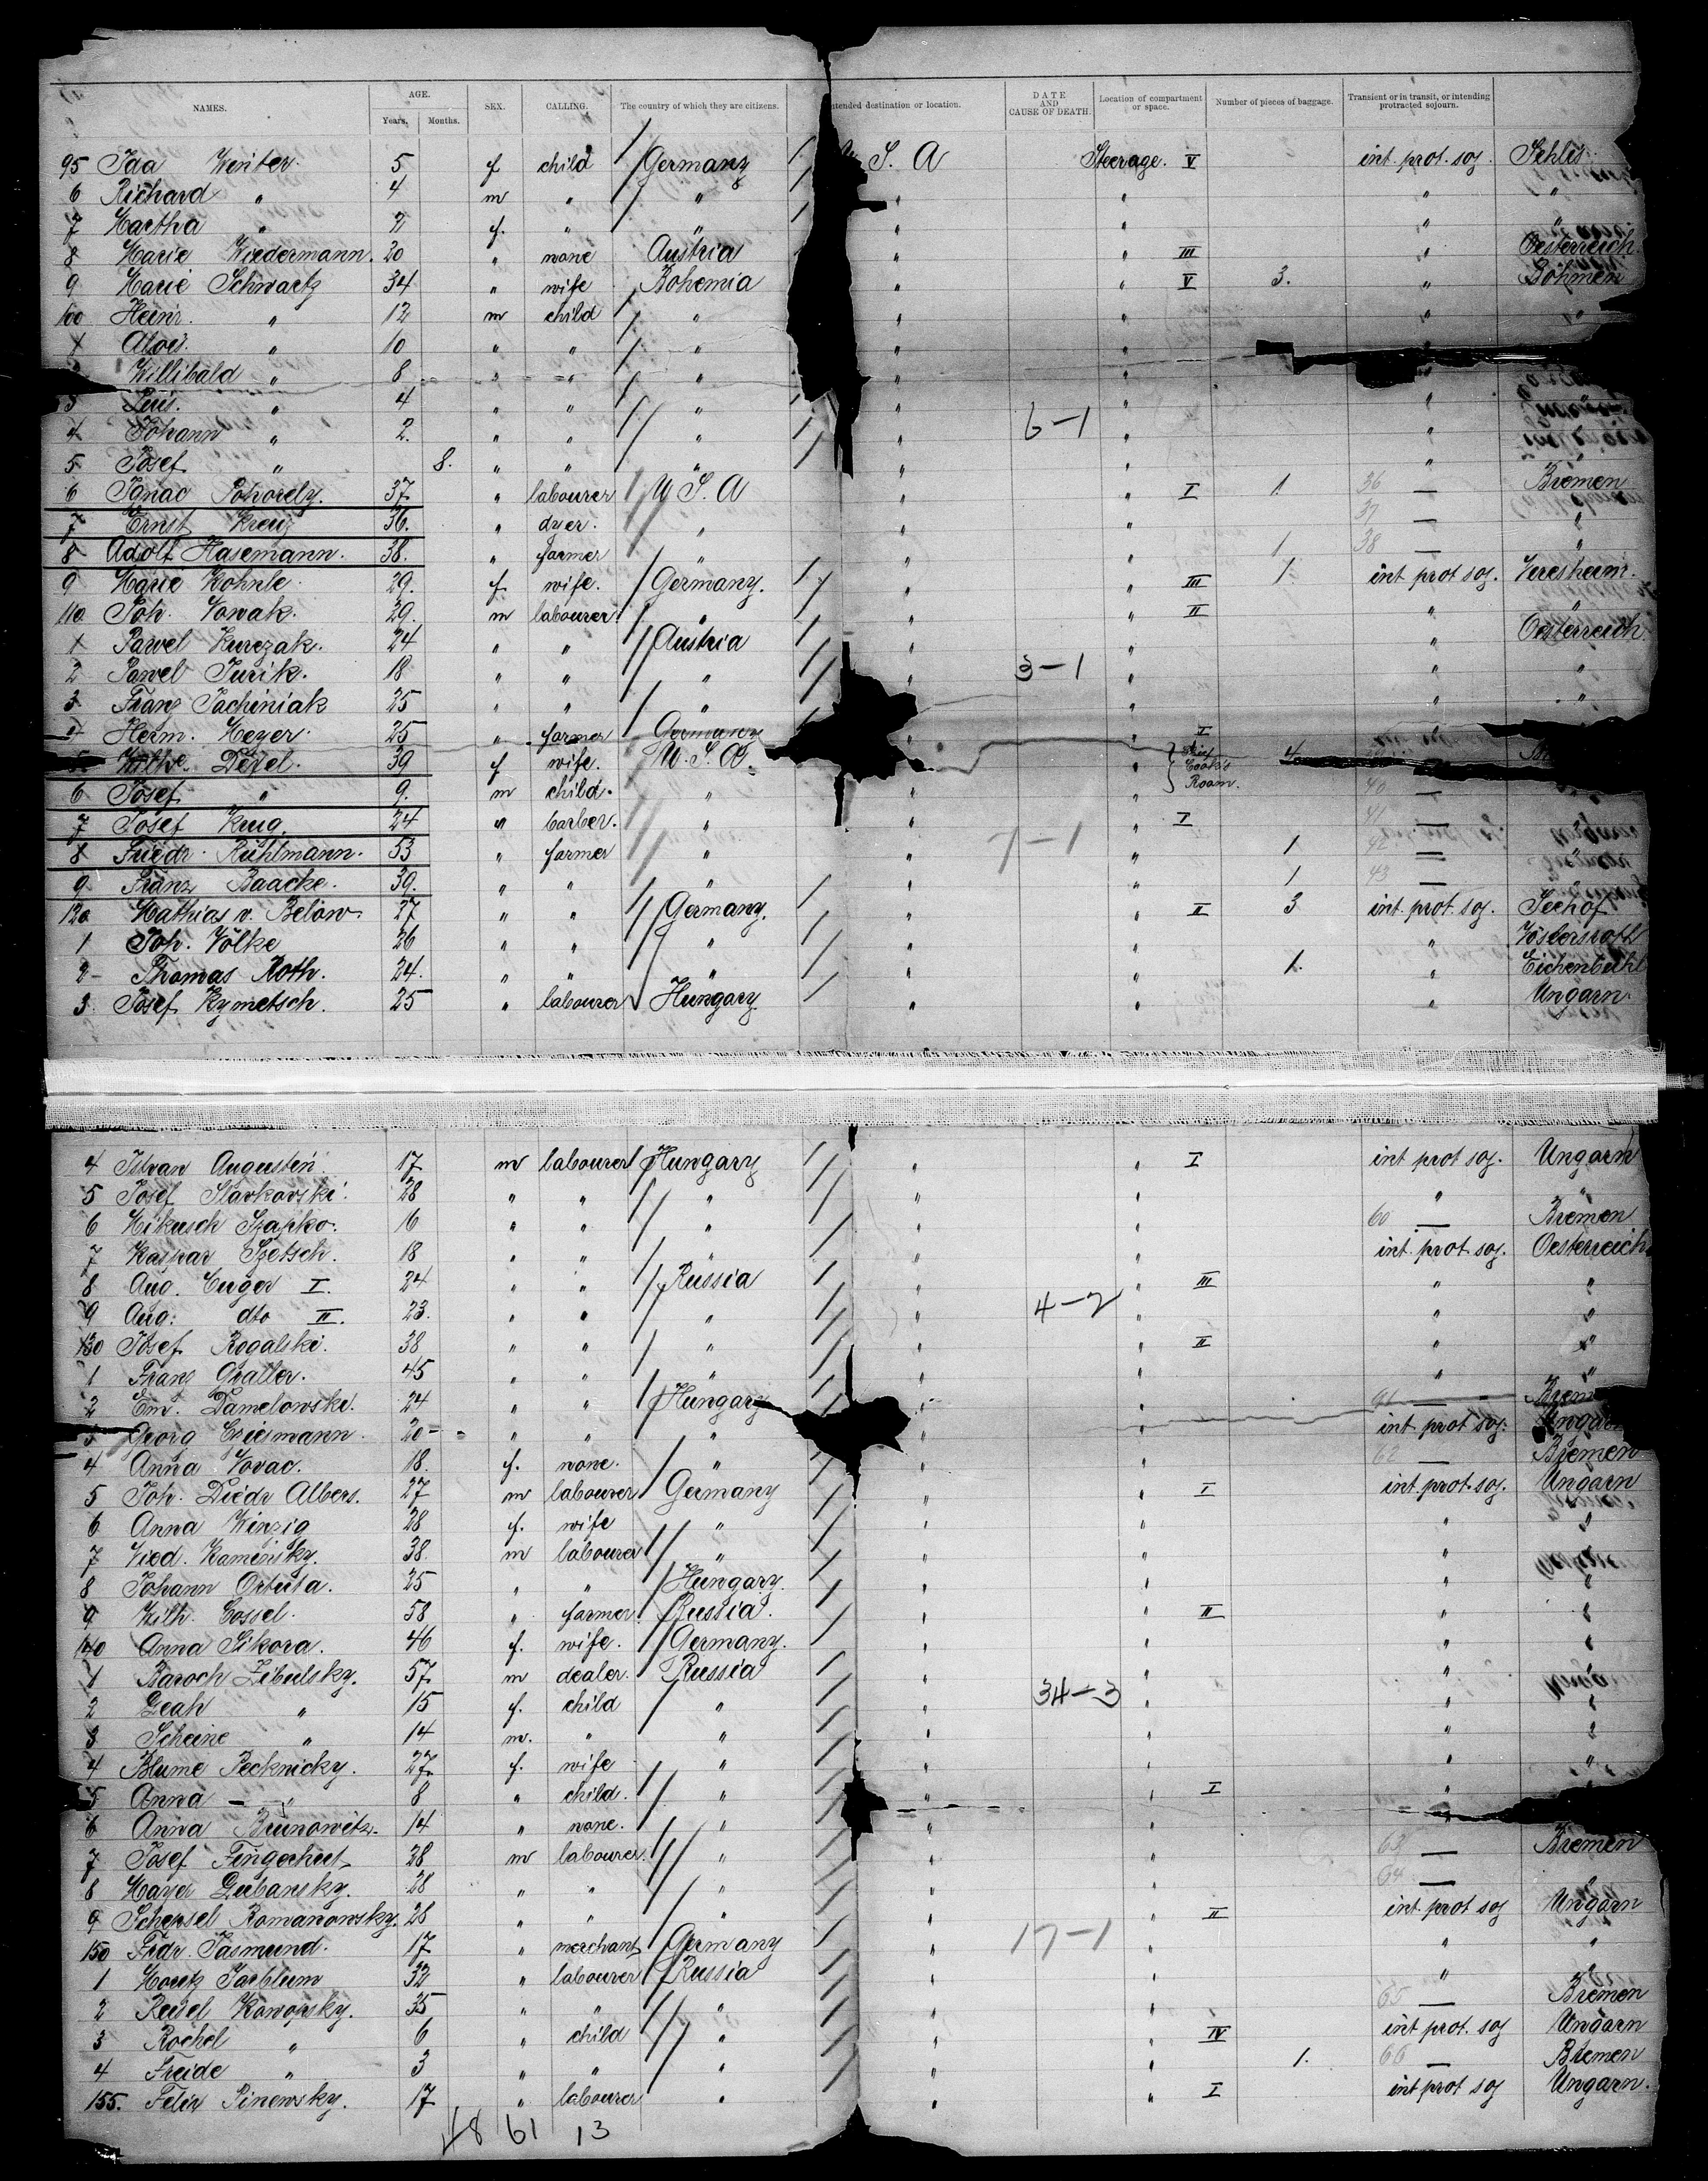 NAMES. AGE. Years. Months. SEX. CALLING. The country of which they are citizens. ntended destination or location. DATE AND CAUSE OF DEATH. Location of compartment or space. Number of pieces of baggage. Transient or in transit, or intending protracted sojourn.
95 Ida Winter. 5 f child Germany S. A Steerage. V int. prot. soj. Schles
6 Richard " 4 m " " " " " "
7 Martha " 2 f. " " " " " "
8 Marie Wiedermann. 20 " none Austria " " III " Oesterreich.
9 Marie Schwartz 34 " wife Bohemia " " V 3. " Böhmen
100 Heinr. " 12 m child " " " " "
1 Alois. " 10 " " " " " "
Willibald " 8 " " " " " "
3 " 4 " " " " " "
4 Johann " 2. " " " " 6-1 " "
5 Josef " 8. " " " " " "
6 Ignac Pohorely. 37 " labourer U. S. A " " I 1. 36 — Bremen
7 Ernst Kreuz 36. " dyer. " " " 37 — "
8 Adolf Hasemann. 38. " farmer " " " 1 38 — "
9 Marie Kohnle. 29. f. wife. Germany. " " III 1. int prot soj.
110 Joh. Nowak. 29. m labourer " " " II " "
1 Pawel Kurczak. 24 " " Austria " " " Oesterreich
2 Pawel Jurik. 18 " " " " 3-1 " " "
3 Franz Jachiniak 25 " " " " " " "
4 Herm. Meyer. 25 " farmer Germany " " I "
5 39 f wife. U. S. A. " " Cook's Room. 4
6 Josef " 9. m child. " " " 40 —
7 Josef Krug. 24 " barber. " " " I 41 —
8 Friedr. Rühlmann. 53 " farmer " " 7-1 " 1 42 —
9 Franz Baacke. 39. " " " " " 1 43 — "
120 Mathias v. Below. 27 " " Germany. " " II 3 int. prot. soj. Seehof
1 Joh. Völke 26 " " " " " "
2 Thomas Roth. 24. " " " " " 1. " Eichenbühl
3 Josef Kymetsch. 25 " labourer Hungary. " " " Ungarn.
4 Istvan Augustin. 17 m labourer Hungary " I int prot soj. Ungarn
5 Josef Slavkovski. 28 " " " " " " "
6 Mikusch Szapko. 16 " " " " " 60 — Bremen
7 Kaspar Szetsch. 18 " " " " " int. prot. soj. Oesterreich
8 Aug. Unger I. 24 " " Russia " " III " "
9 Aug. dto II. 23. " " " " 4-2 " " "
130 Josef Rogalski. 38 " " " " " II " "
1 Franz Gratler. 45 " " " " " " "
2 Em. Damelowski. 24 " " Hungary " " 61 — Brem
3 Georg 20 " " " " " int. prot soj. Ungarn
4 Anna Novac. 18. f. none. " " " 62 — Bremen.
5 Joh. Diedr Albers. 27 m labourer Germany " " I int. prot. soj. Ungarn
6 Anna Kinzig 28 f. wife " " " " "
7 Kaminsky. 38. m labourer " " " " "
8 Johann Ortuta. 25 " " Hungary. " " " "
9 Wilh. Cossel. 58 " farmer. Russia. " " II " "
140 Anna Sikora. 46 f. wife. Germany. " " " "
1 Baroch Zibulsky. 57. m dealer. Russia " " " "
2 Leah " 15 f. child " " 34-3 " " "
3 Scheine " 14 m. " " " " " "
4 Blume Pecknicky. 27. f. wife " " " " "
5 Anna — " 8 " child. " " " I "
6 Anna Brunowitz. 14 " none. " " "
7 Josef Fingerhut 28 m labourer. " " " 63 — Bremen
8 Mayer Lubansky. 28 " " " " " 64 — "
9 Schepsel Romanowsky. 28 " " " " " II int. prot soj Ungarn
150 Frdr. Jasmund. 17 " merchant Germany " 17-1 " " "
1 32 " labourer Russia " " " "
2 35 " " " " " 65 — Bremen
3 Rochel " 6 " child " " " IV int prot. soj Ungarn
4 Freide " 3 " " " " " 1. 66 — Bremen
155. Felix Pinewsky. 17 " labourer " " " I int prot soj Ungarn.
48 61 13